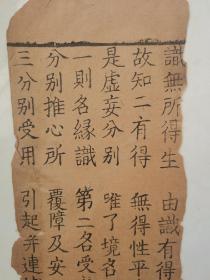 識無所得生 由識有得
故知二有得 無得性平
是虛妄分別 唯了境名
一則名緣識 第二名受
分別推心所 覆障及安
三分別受用 引起并連